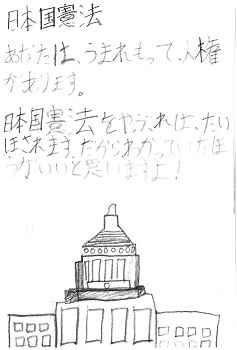 日本国憲法
あなたは、うまれもって、人権
があります。
日本国憲法をやぶれは、たい
ほされます。だからわかっていたほ
うがいいと思いますよ!